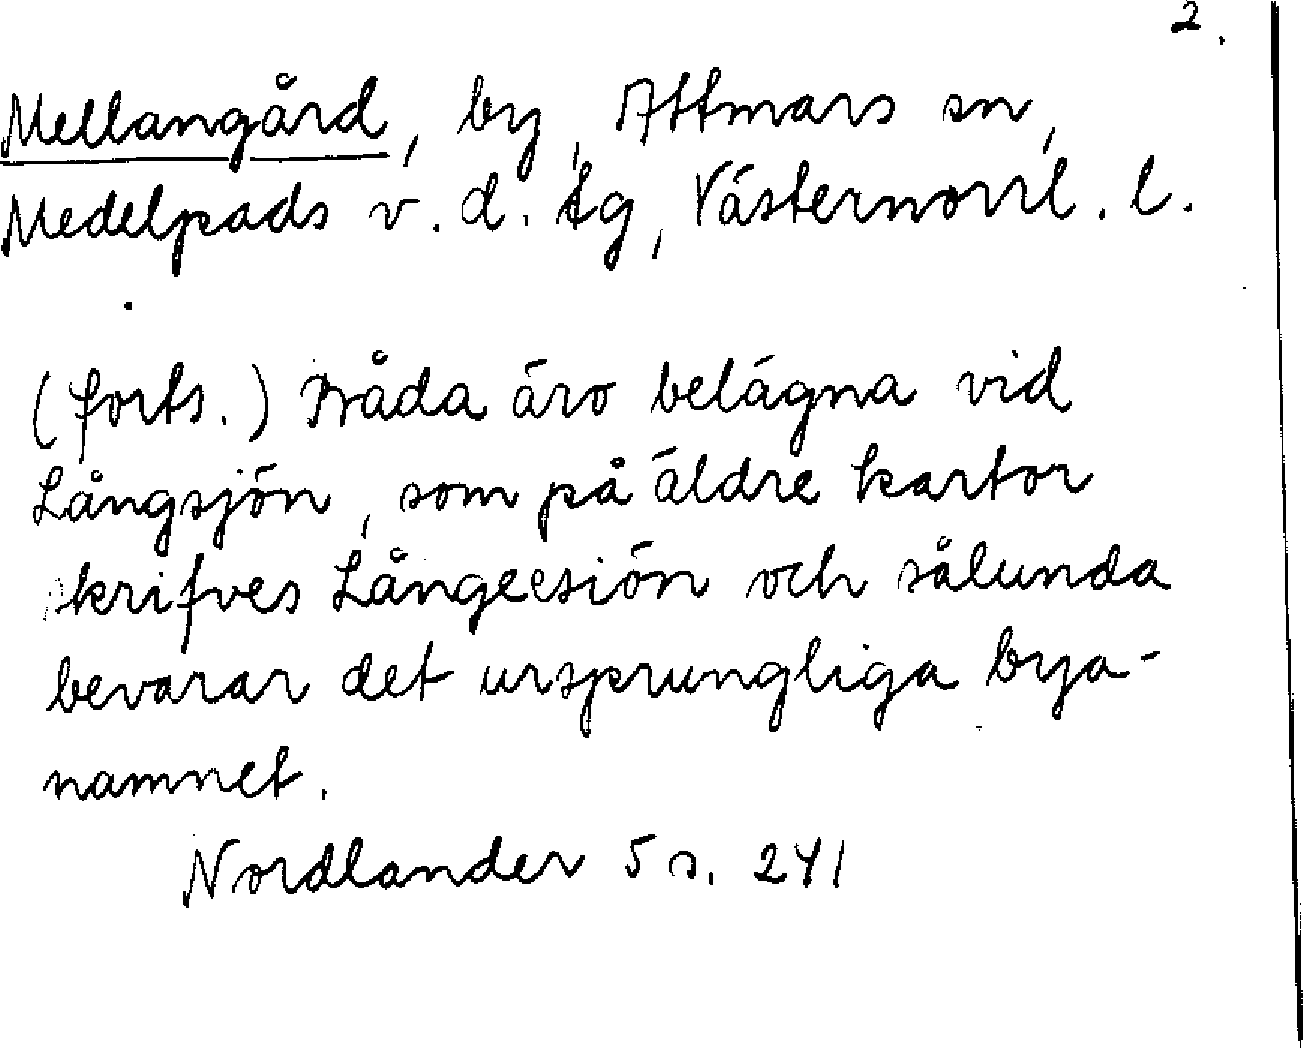 2.
Mellangård, by, Attmars sn,
Medelpads v. d. tg, Västernorrl. l.
(forts.) Båda äro belägna vid
Långsjön, som på äldre kartor
skrifves Långeesiön och sålunda
bevarar det ursprungliga bya-
namnet.
Nordlander 5 s. 241